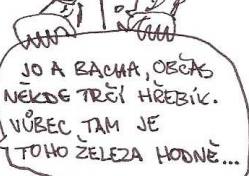 JO A BACHA, OBČAS
NĚKDE TRČÍ HŘEBÍK.
VŮBEC TAM JE
TOHO ŽELEZA HODNĚ...